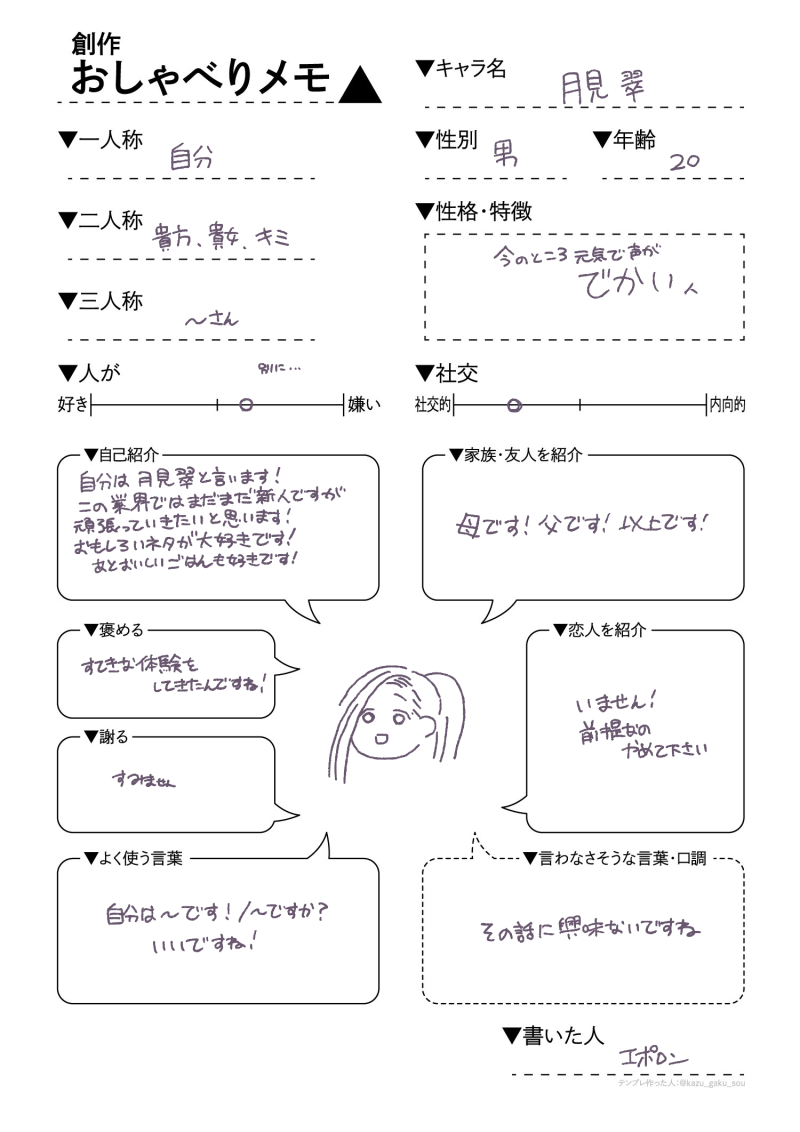 創作
おしゃべりメモ▲
▼キャラ名
月見 翠
▼一人称
自分
▼性別
男
▼年齢
20
▼二人称
貴方、貴女、キミ
▼性格・特徴
今のところ元気で声が
でかい人
▼三人称
〜さん
▼人が
別に…
好き
嫌い
▼社交
社交的
内向的
▼自己紹介
自分は月見翠と言います!
この業界ではまだまだ新人ですが
頑張っていきたいと思います!
おもしろいネタが大好きです!
あとおいしいごはんも好きです!
▼家族・友人を紹介
母です!父です!以上です!
▼褒める
すてきな体験を
してきたんですね!
▼恋人を紹介
いません!
前提なの
やめて下さい
▼謝る
すみません
▼よく使う言葉
自分は〜です!/〜ですか?
いいですね!
▼言わなさそうな言葉・口調
その話に興味ないですね
▼書いた人
エポロン
テンプレ作った人:@kazu_gaku_sou